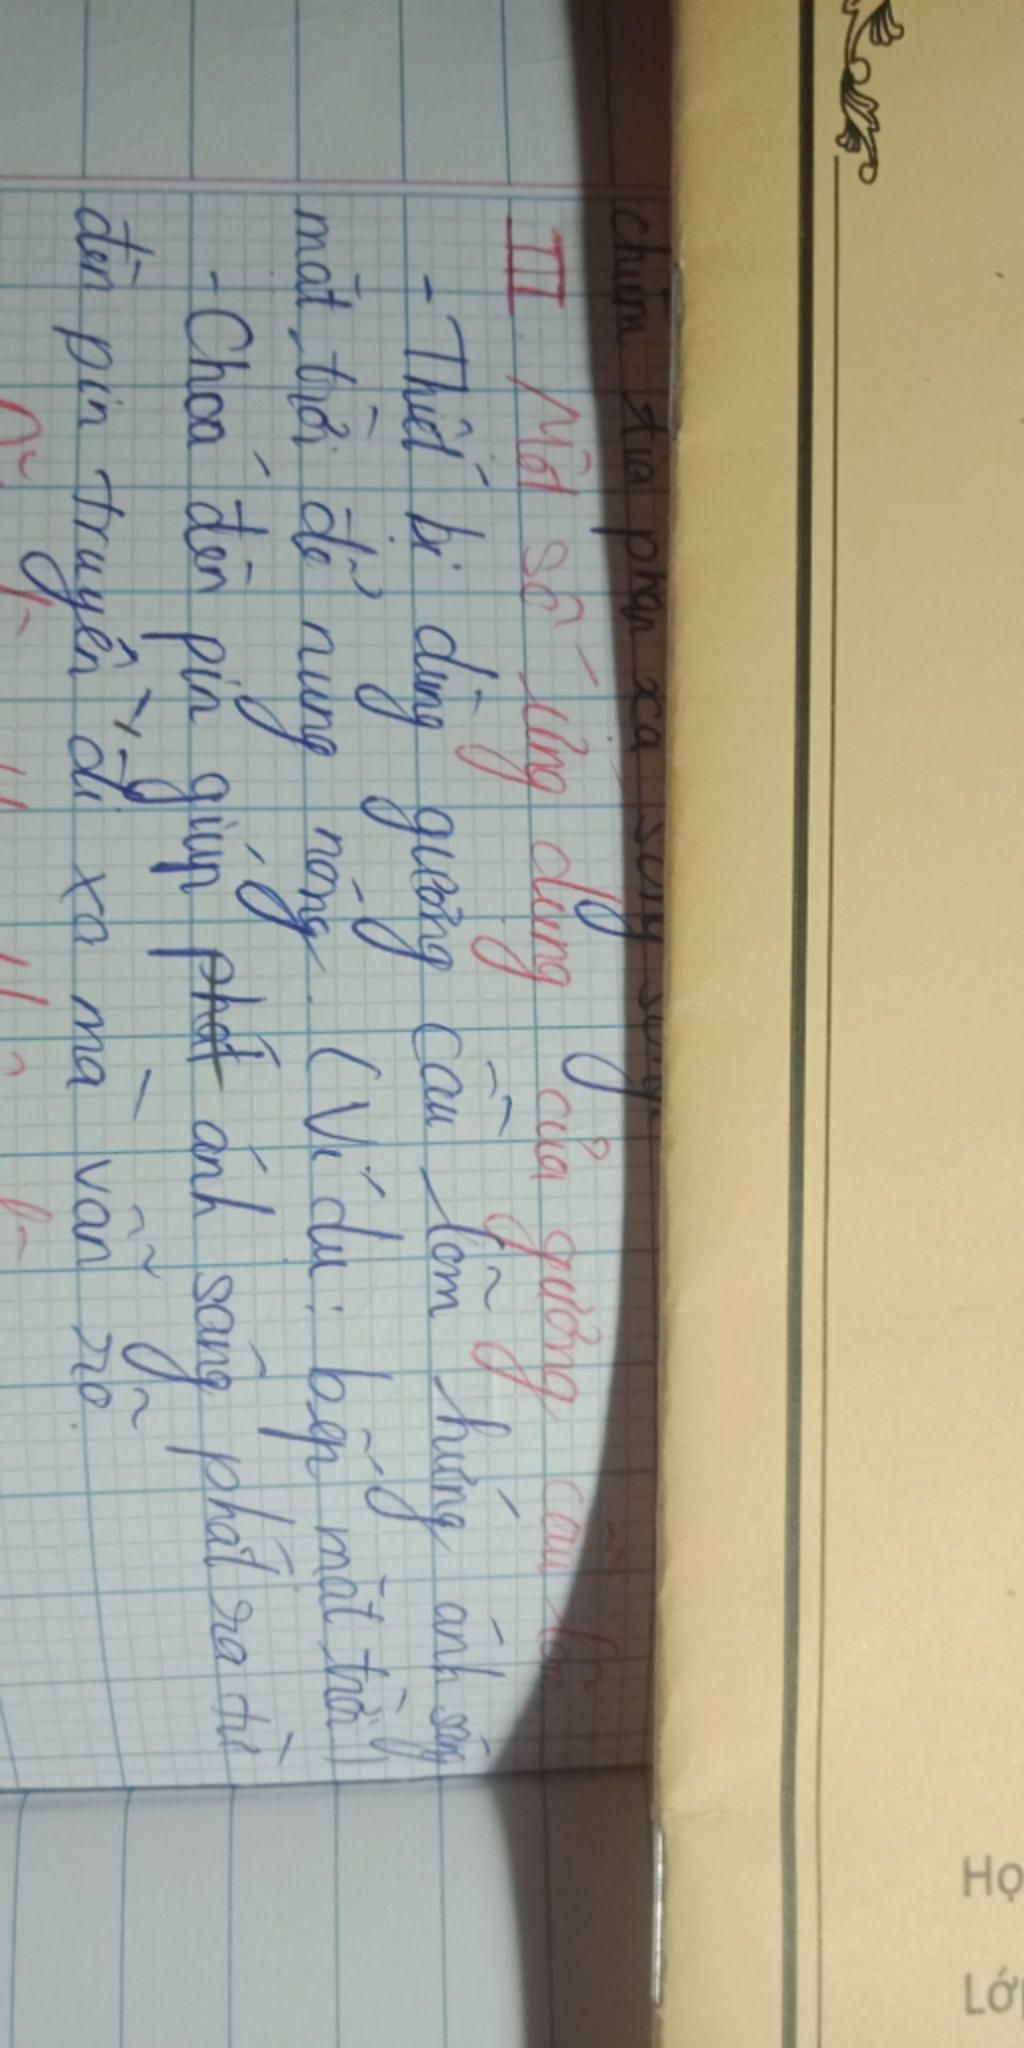 chùm tia phản xạ song song.
III. Một số ứng dụng của gương cầu lõm
- Thiết bị dùng gương cầu lõm hứng ánh sáng
mặt trời để nung nóng. (Ví dụ: bếp mặt trời)
- Choá đèn pin giúp phát ánh sáng phát ra từ
đèn pin truyền đi xa mà vẫn rõ.
Họ
Lớp